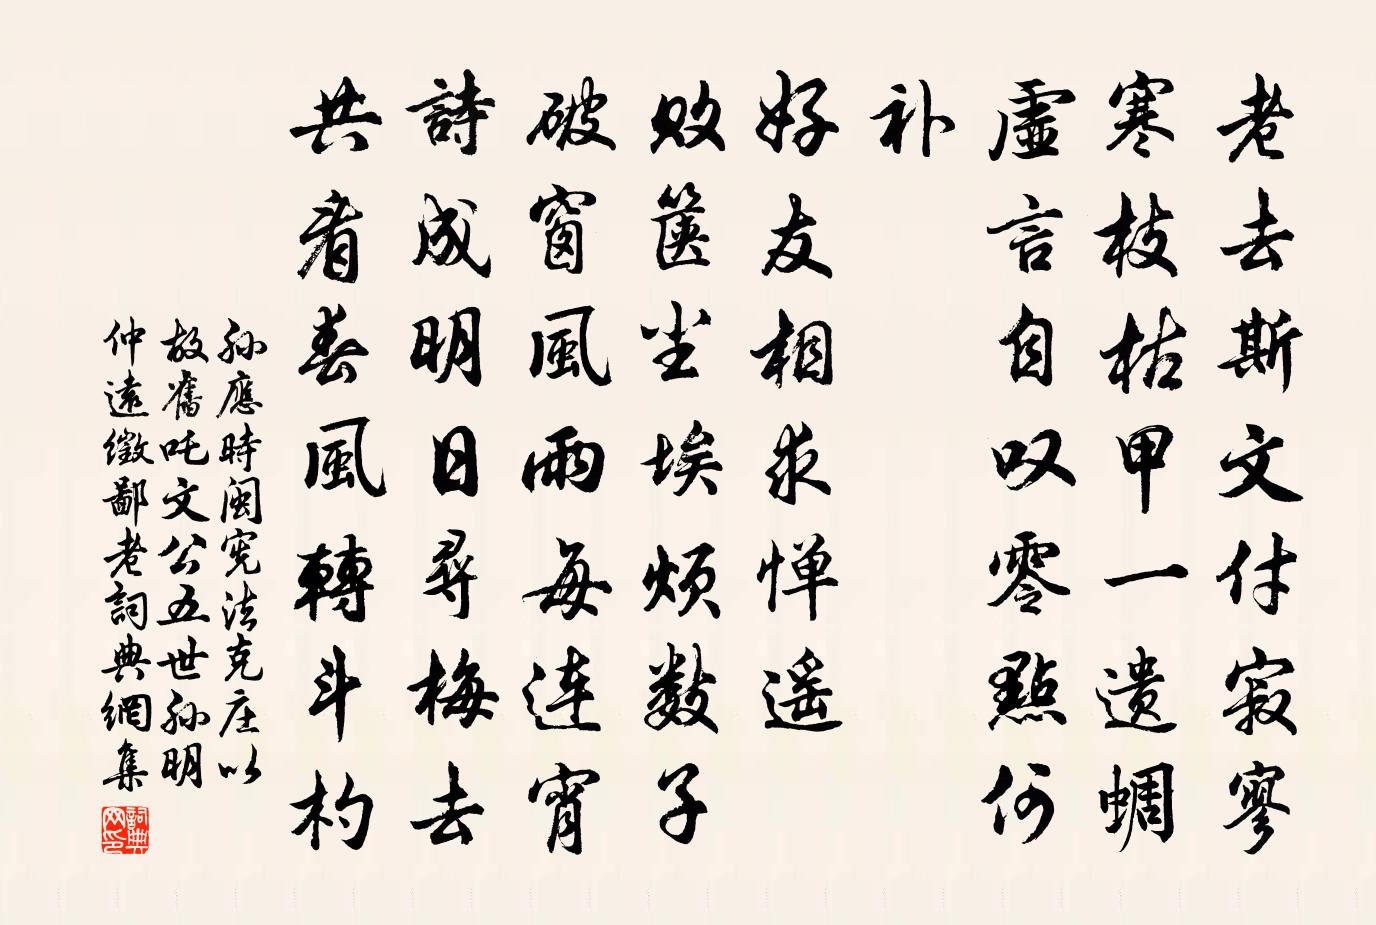 老去斯文付寂寥
寒枝枯甲一遗蜩
虛言自叹零點何
补
好友相求惮遥
敗箧尘埃烦数子
破窗風雨每连宵
詩成明日尋梅去
共看春風轉斗杓
孙應時闽宪法克庄以
故舊吒文公五世孙明
仲遠徵鄙老詞典網集
詞典網印